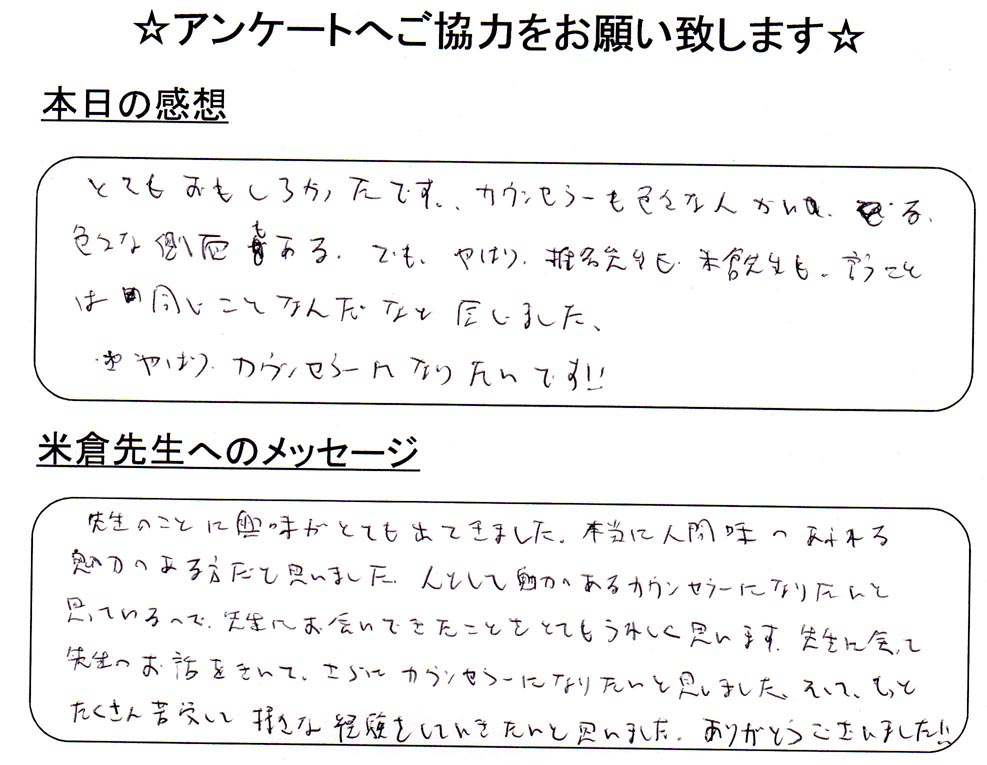 ☆アンケートへご協力をお願い致します☆
本日の感想
とてもおもしろかったです。カウンセラーも色々な人がいる、
色々な側面もある。でも、やはり、椎名先生も、米倉先生も、言うこと
は同じことなんだなと感じました、
やはり、カウンセラーになりたいです!!
米倉先生へのメッセージ
先生のことに興味がとても出てきました。本当に人間味のあふれる
魅力のある方だと思いました。人として魅力のあるカウンセラーになりたいと
思っているので、先生にお会いできたことをとてもうれしく思います。先生に会って
先生のお話をきいて、さらにカウンセラーになりたいと思いました。そして、もっと
たくさん苦労して様々な経験をしていきたいと思いました。ありがとうございました!!